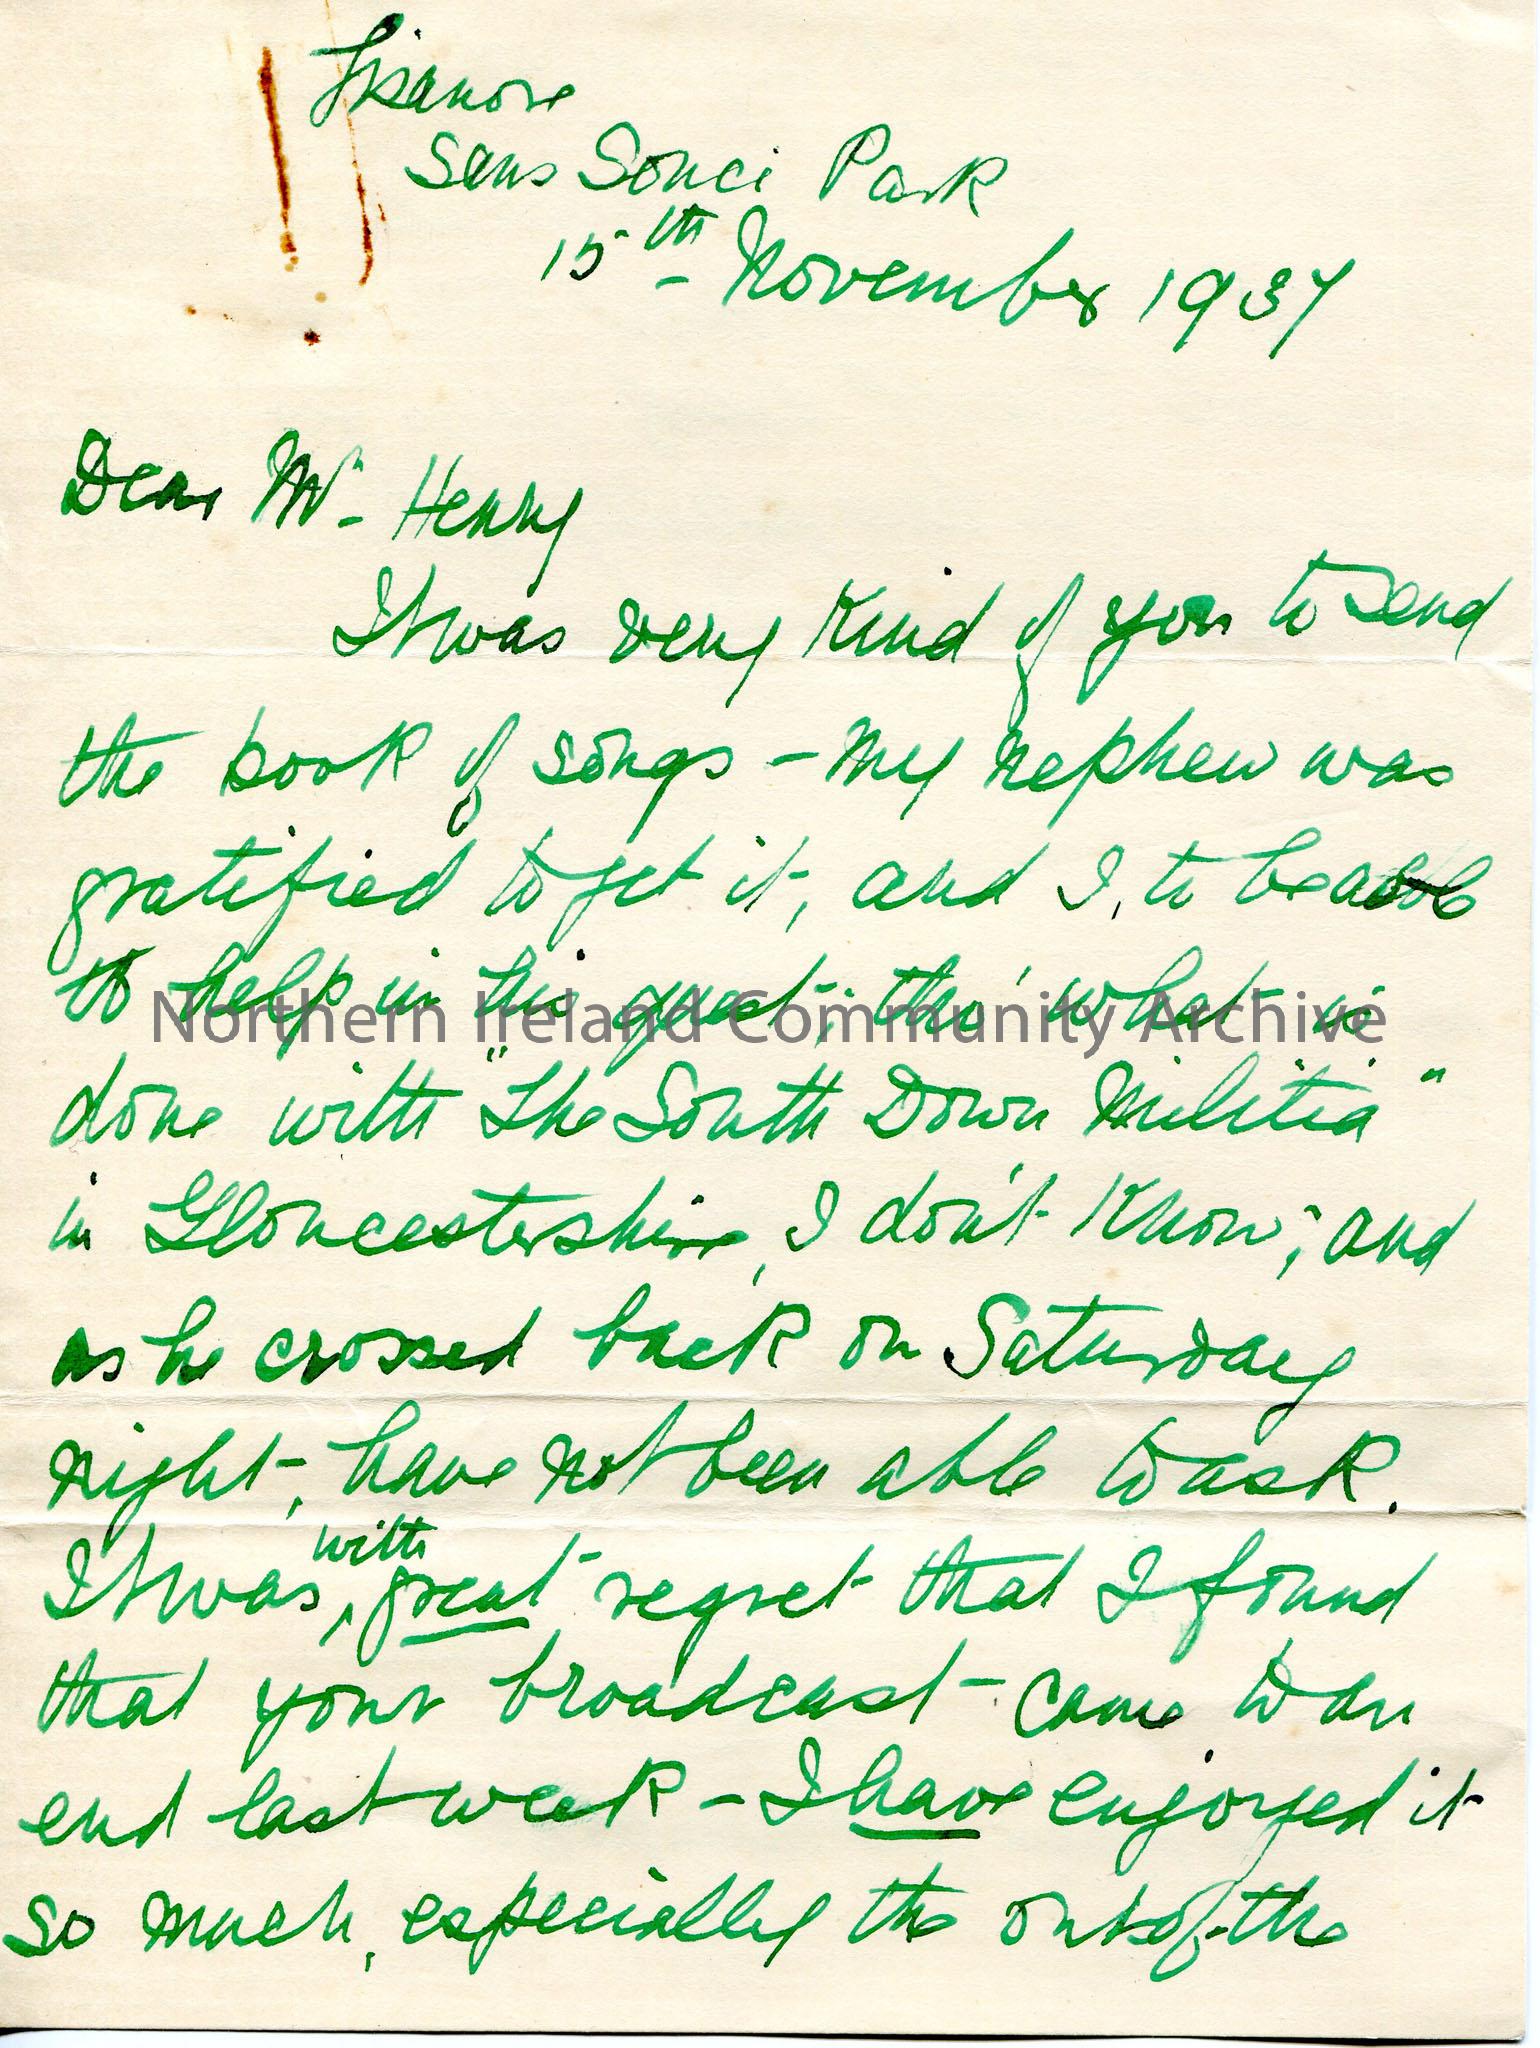 Lisanore
Sans Souci Park
15th November 1937
Dear Mr. Henry
It was very kind of you to send
the book of songs - my nephew was
gratified to get it, and I, to be able
to help in his quest; tho' what is
Northern Ireland Community Archive
done with "The South Down Militia"
in Gloucestershire, I don't know; and
as he crossed back on Saturday
night, have not been able to ask.
It was with great regret that I found
that your broadcast came to an
end last week - I have enjoyed it
so much, especially the out-of-the